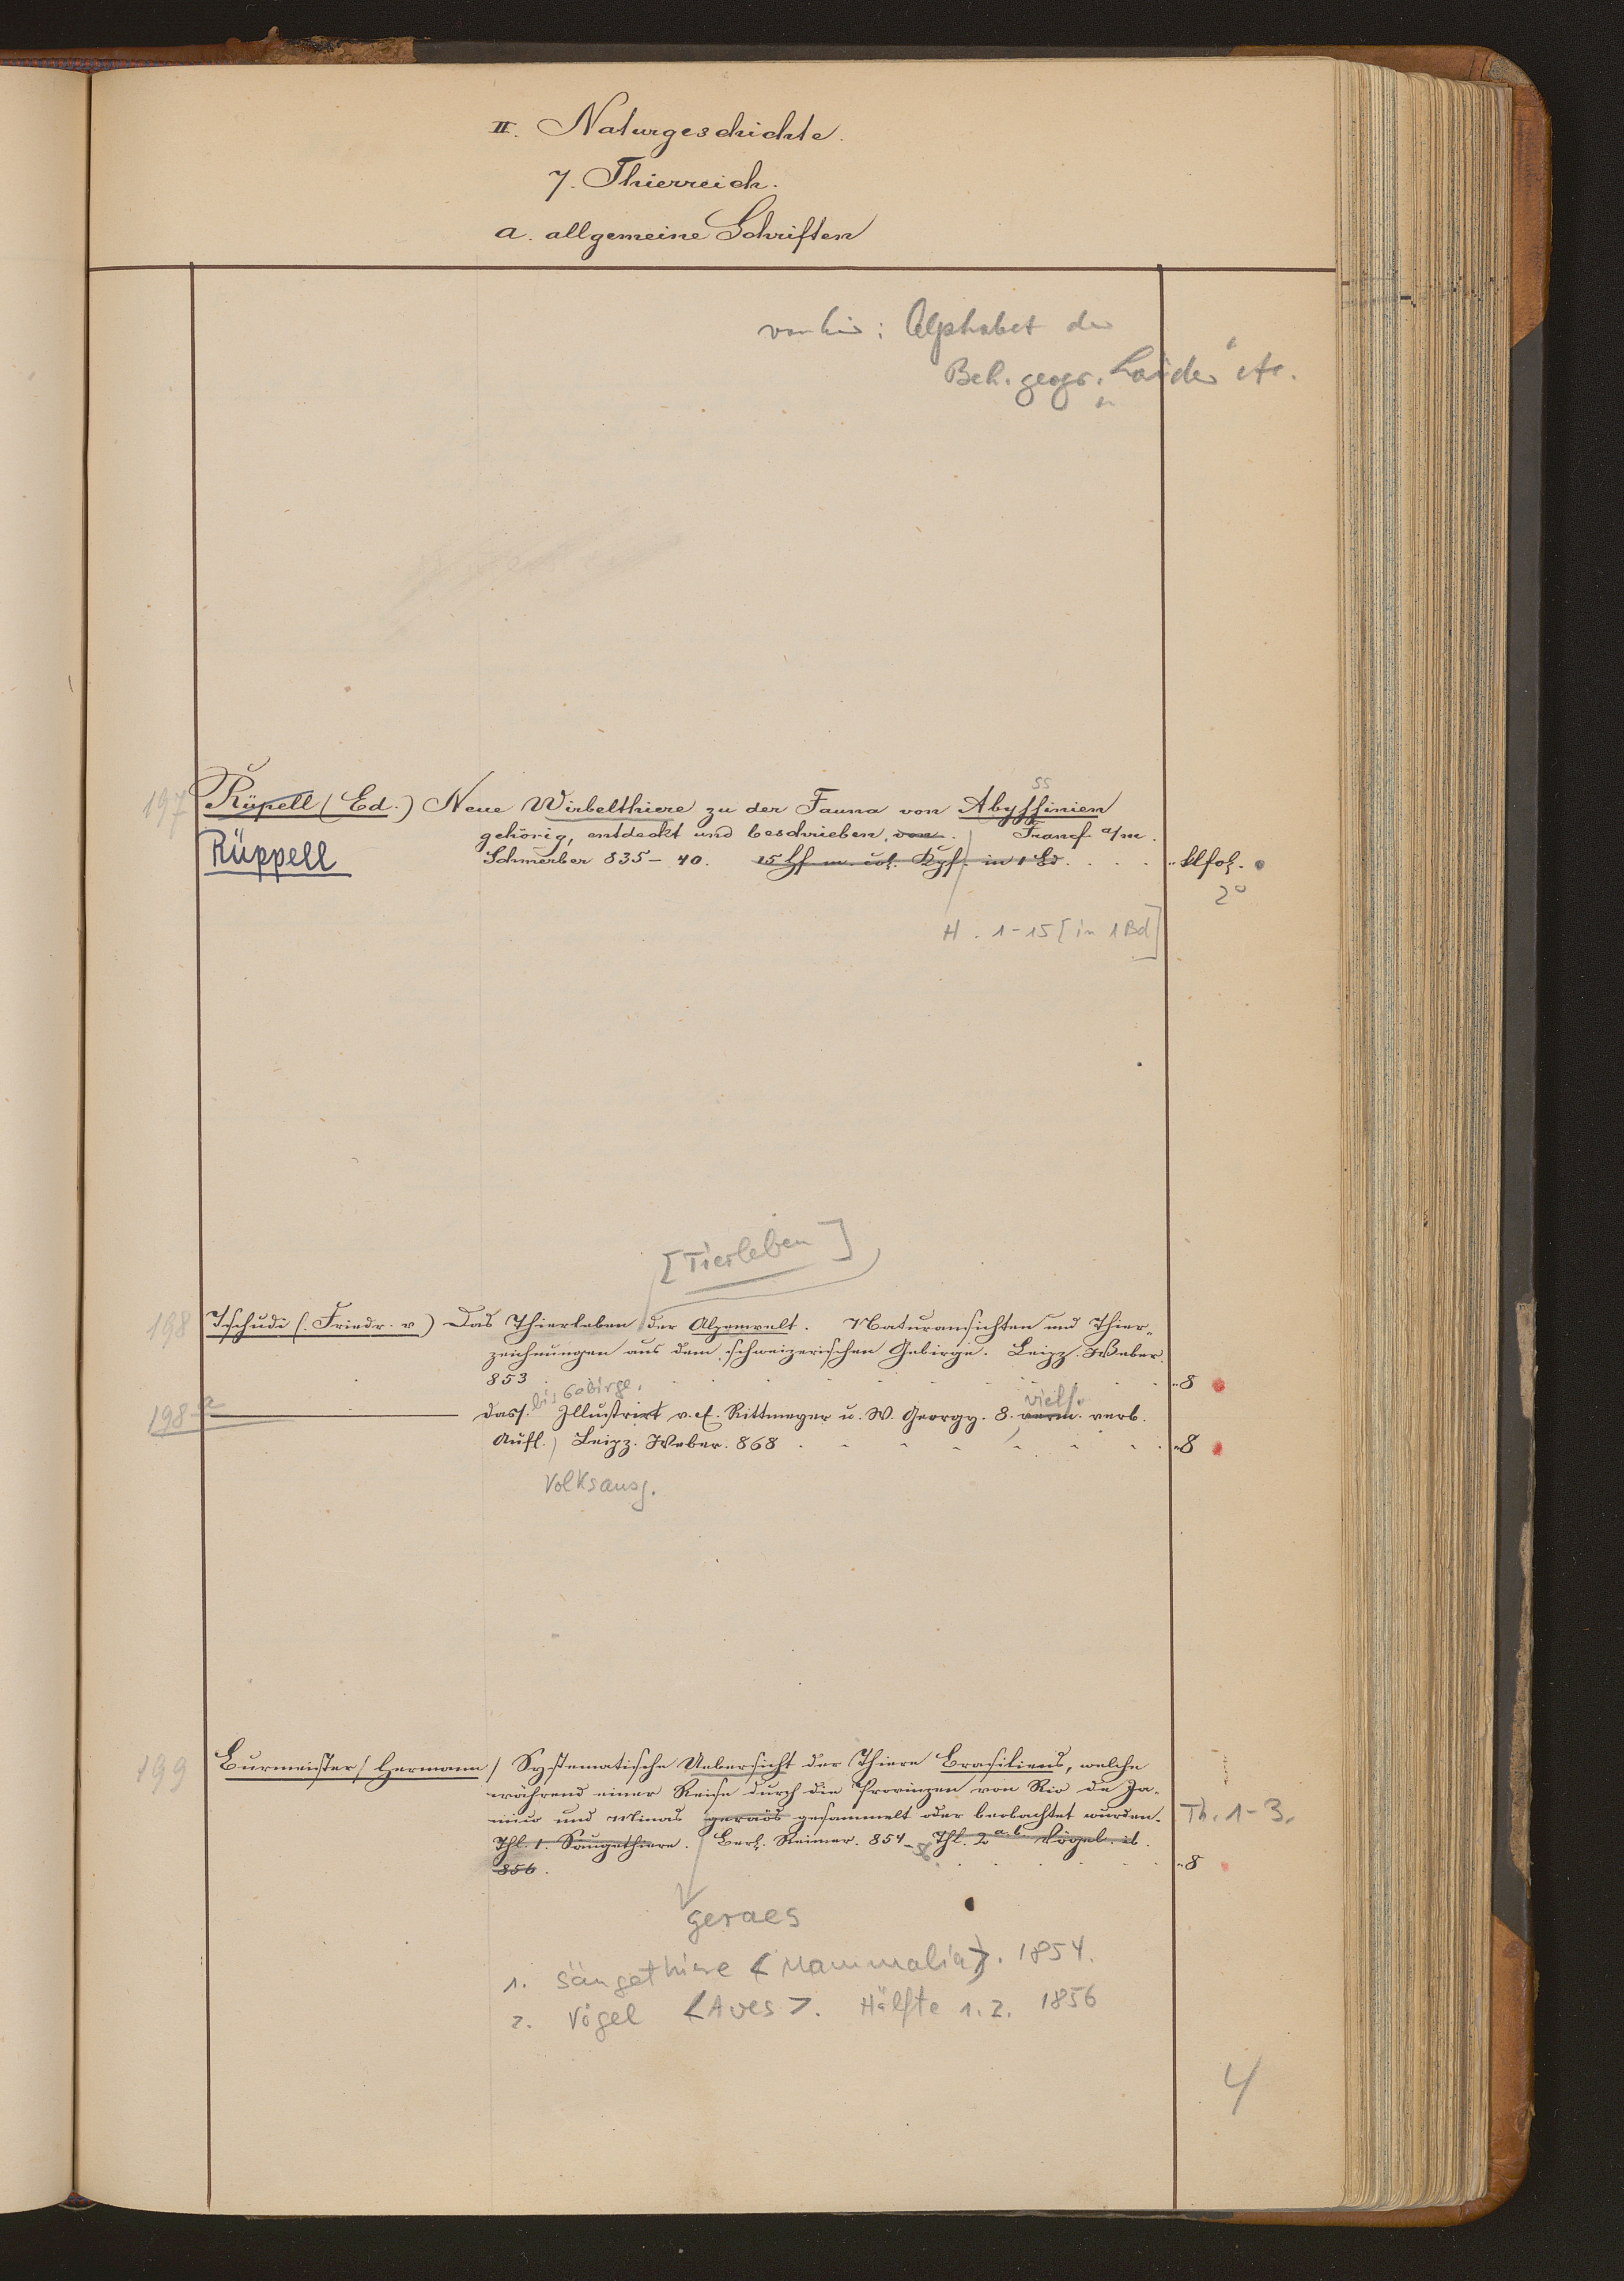 II. Naturgeschichte.
7. Thierreich.
a. allgemeine Schriften
von hier: Alphabet der
Beh. geogr. Länder etc.
ss
197 Rüpell (Ed.) Neue Wirbelthiere zu der Fauna von Abyssinien
gehörig, entdeckt und beschrieben, von. Francf a/m.
Rüppell
Schmerber 835-40. 15 Hf m. col. Kpf. in 1 Bd. . . . . „ klfol.
2°
H. 1-15 [in 1 Bd]
[Tierleben]
198 Tschudi (Friedr. v) Das Thierleben der Alpenwelt. Naturansichten und Thier-
zeichnungen aus dem schweizerischen Gebirge. Leipz. Weber.
853 „ 8
bis Gebirge. vielf.
198-a dass. Illustrirt v. E. Rittmeyer u. W. Georgy. 8. verm. verb.
Aufl. Leipz. Weber. 868 . . . . . . . „ 8
Volksausg.
199 Burmeister (Hermann) Systematische Uebersicht der Thiere Brasiliens, welche
während einer Reise durch die Provinzen von Rio de Ja-
neiro und Minas geraös gesammelt oder beobachtet wurden. Th. 1-3.
Thl. 1. Säugethiere. Berl. Reimer. 854-56 Thl. 2 a.b. Vögel. ib.
856. „ 8
geraes
1. Säugethiere <Mammalia>. 1854.
2. Vögel <Aves>. Hälfte 1.2. 1856
4